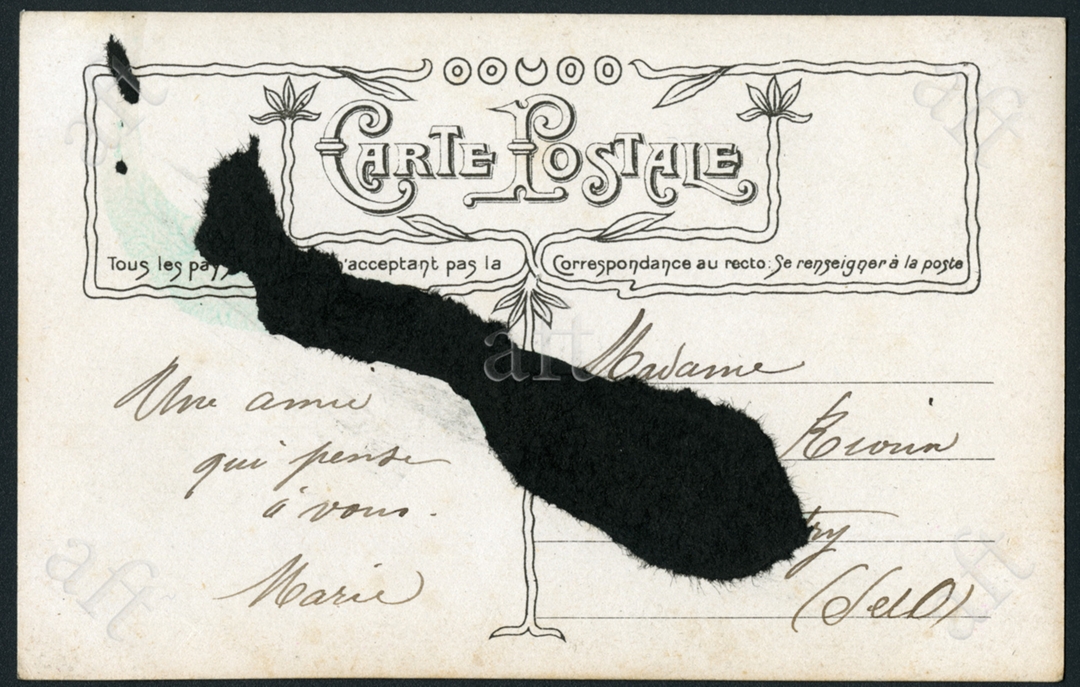 CARTE POSTALE
Tous les pay n'acceptant pas la Correspondance au recto: Se renseigner à la poste
Madame
Une amie
qui pense
à vous.
Marie
try
(S et O)
aft
aft
aft
aft
aft